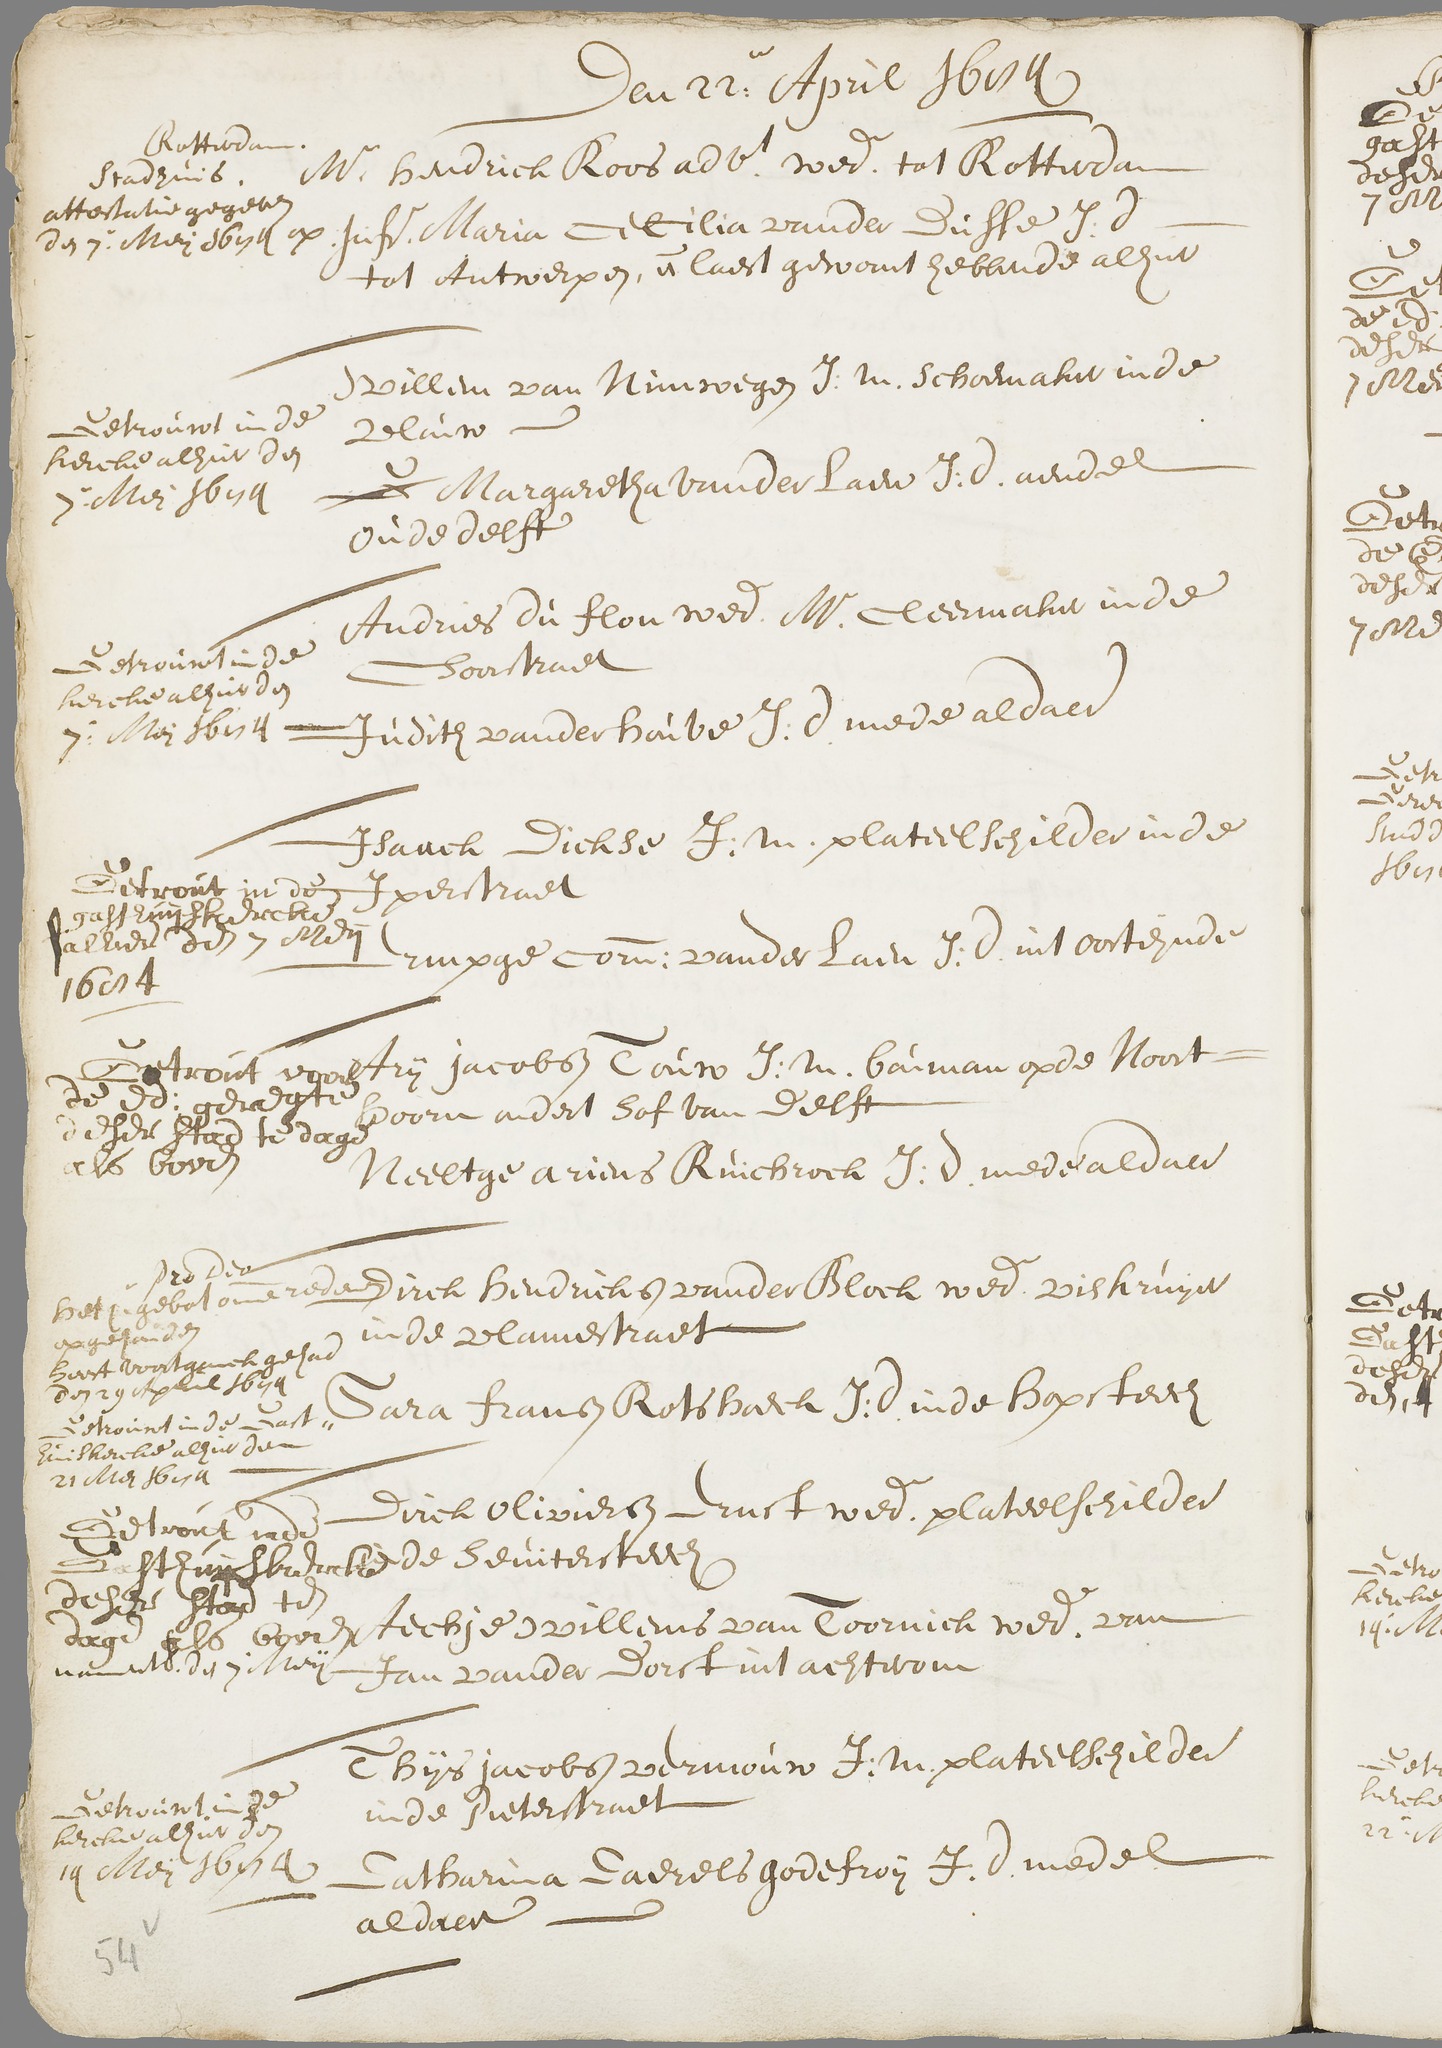 Den 22en April 1674
Rotterdam.
Stadhuis.
attestatie gegeven
den 7: Meij 1674 op
Mr. Hendrick Roos advt. wedr. tot Rotterdam
Jufr. Maria Cecilia vander Dusse J: d
tot Antwerpen, en laest gewoont hebbende alhier
Getrouwt in de
kercke alhier den
7: Meij 1674
Willem van Nimwegen J: m. schoemaker inde
Blauw
Margaretha vander Laen J: d. aende
Oude delft
Getrouwt in de
kercke alhier den
7: Meij 1674
Andries du flon wedr. Mr. Cleermaker inde
Choorstraet
Judith vander houve J: d mede aldaer
Getrout in de
gasthuijskercke
alhier den 7 Meij
1674
Isaack Dickse J: m. plateelschilder inde
Iperstraet
Empge Corn: vander Laen J: d int oosteijnde
Getrout voor
de Ed: geregte
deser stad te dage
als boven
Arij jacobsz Touw J: m. bouman opde Noort=
hoorn ondert hof van Delft
Neeltge ariens Ruichrock J: d. mede aldaer
pro deo
het gebot om reden
opgehouden
heeft voortganck gehad
den 29 April 1674
Getrouwt in de Gast-
huiskercke alhier den
21 Meij 1674
Dirck Hendricksz vander Block wedr. viskruijer
inde vlamestraet
Sara fransz Rotshoeck J: d inde hopsteech
Getrout inde
Gasthuijskercke
deser stad ten
dage als boven
namentl. den 7 Meij
Dirck Oliviersz Ernst wedr. plateelschilder
inde Geuitersteech
Aechje Willems van Toornick wed. van
Jan vander Dorst int achterom
Getrouwt in de
kercke alhier den
14 Meij 1674
Thijs jacobsz vermouw J: m. plateelschilder
inde Pieterstraet
Catharina Caerels godefroij J: d. mede
aldaer
54 v